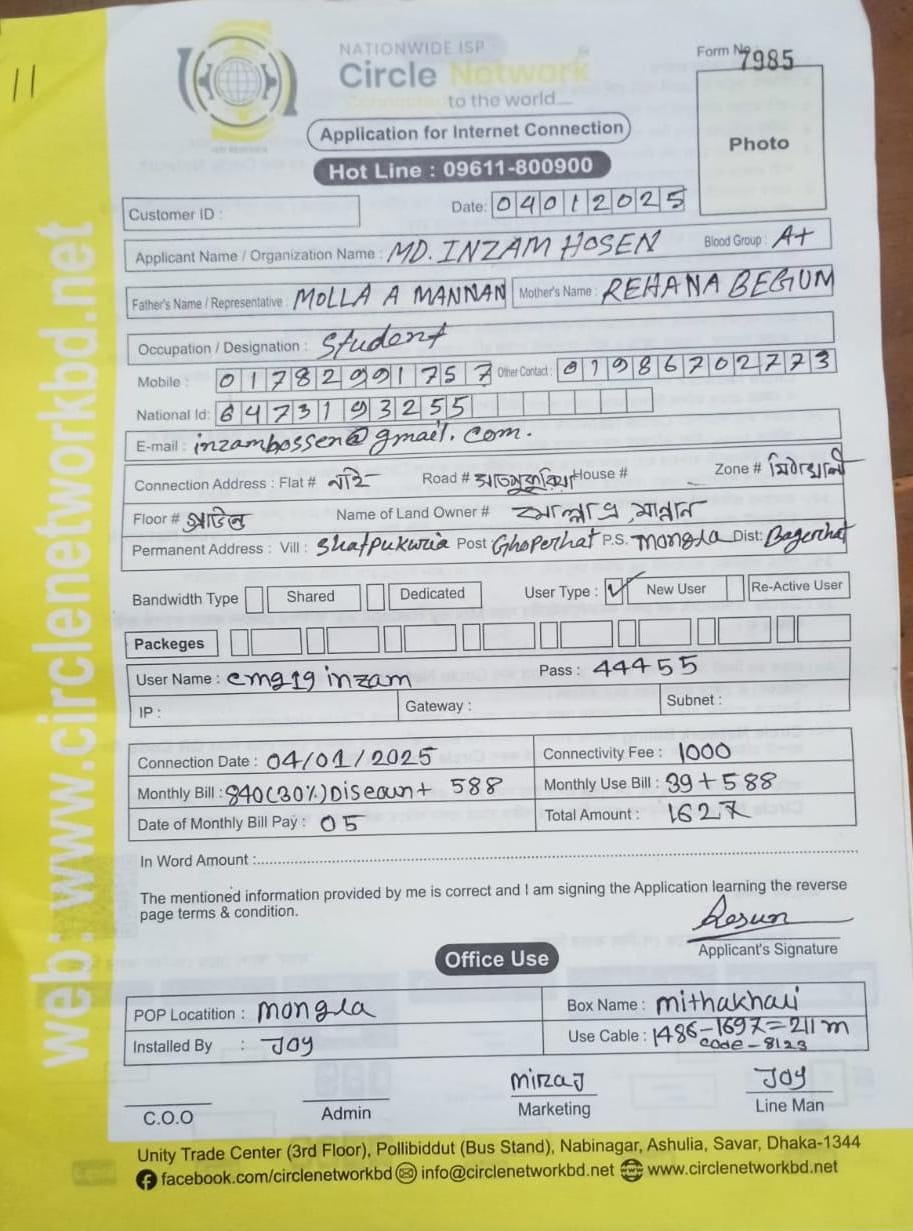 11
NATIONWIDE ISP
Circle Network
Connected to the world...
Form No 7985
Photo
Application for Internet Connection
Hot Line : 09611-800900
Customer ID :
Date: 04012025
Applicant Name / Organization Name : MD. INZAM HOSEN Blood Group : A+
Father's Name / Representative : MOLLA A MANNAN Mother's Name : REHANA BEGUM
Occupation / Designation : Student
Mobile : 01782991757 Other Contact : 01986702773
National Id: 6473193255
E-mail : inzambossen@gmail.com.
Connection Address : Flat # নাই Road # সাতপুকুরিয়া House # Zone #
Floor # Name of Land Owner # মোল্লা এ মান্নান
Permanent Address : Vill : Shatpukuria Post : Ghoperhat P.S. mongla Dist: Bagerhat
Bandwidth Type Shared Dedicated User Type : ✓ New User Re-Active User
Packeges
User Name : cmg19inzam Pass : 44455
IP : Gateway : Subnet :
Connection Date : 04/01/2025 Connectivity Fee : 1000
Monthly Bill : 840(30%)Discount 588 Monthly Use Bill : 39+588
Date of Monthly Bill Pay : 05 Total Amount : 1627
In Word Amount :
The mentioned information provided by me is correct and I am signing the Application learning the reverse
page terms & condition.
Applicant's Signature
Office Use
POP Locatition : mongla Box Name : mithakhali
Installed By : JOY Use Cable : 1486-1697=211m
code-8123
miraj JOY
C.O.O Admin Marketing Line Man
Unity Trade Center (3rd Floor), Pollibiddut (Bus Stand), Nabinagar, Ashulia, Savar, Dhaka-1344
facebook.com/circlenetworkbd info@circlenetworkbd.net www.circlenetworkbd.net
web: www.circlenetworkbd.net